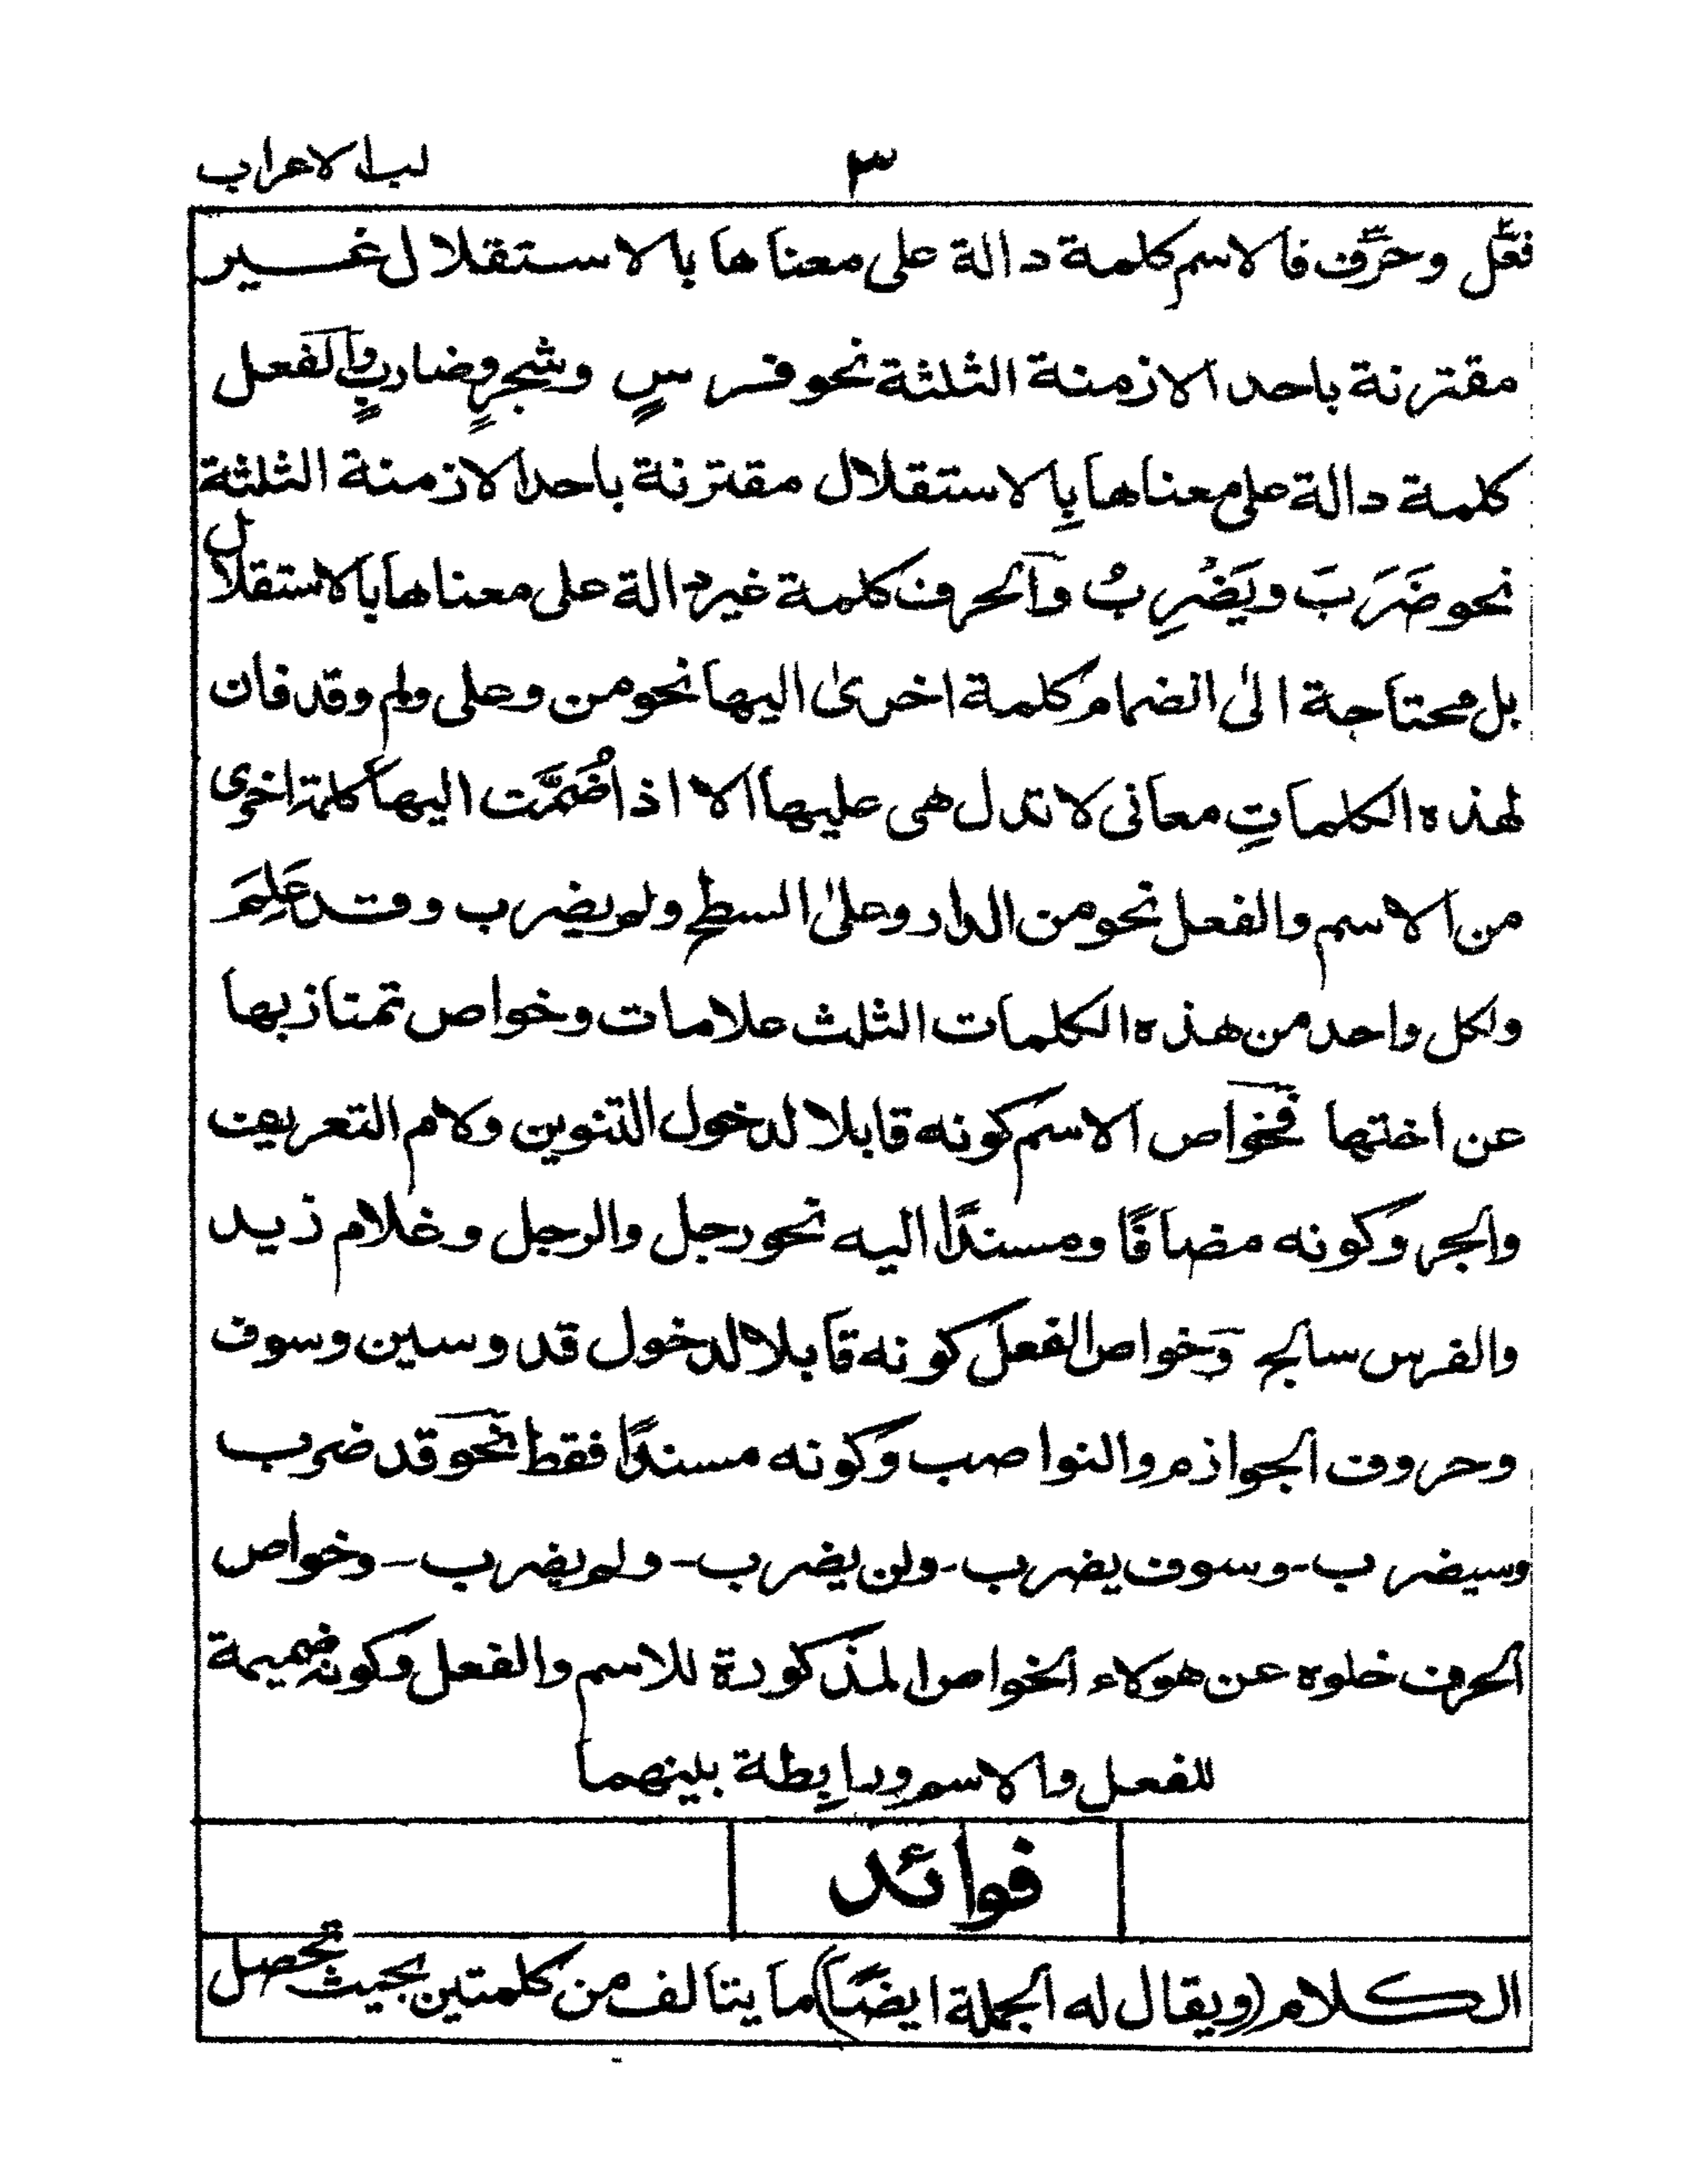 لب الاعراب
٣
فعل وحرف فالاسم كلمة دالة على معناها بالاستقلال غير
مقترنة باحد الازمنة الثلثة نحو فرسٍ وشجرٍ وضاربٍ والفعل
كلمة دالة على معناها بِالاستقلال مقترنة باحد الازمنة الثلثة
نحو ضَرَبَ ويَضْرِبُ والحرف كلمة غير دالة على معناها بالاستقلال
بل محتاجة الىٰ انضمام كلمة اخرىٰ اليها نحو من وعلى ولم وقد فان
لهذه الكلماتِ معانى لا تدل هى عليها الا اذا ضُمَّت اليها كلمة اخرى
من الاسم والفعل نحو من الدار وعلىٰ السطح ولم يضرب وقد عَلِمَ
ولكل واحد من هذه الكلمات الثلث علامات وخواص تمتاز بها
عن اختها فخواص الاسم كونه قابلا لدخول التنوين ولام التعريف
والجر وكونه مضافًا ومسندًا اليه نحو رجل والرجل وغلام زيد
والفرس سابح وخواص الفعل كونه قابلا لدخول قد وسين وسوف
وحروف الجوازم والنواصب وكونه مسندًا فقط نحو قد ضرب
وسيضرب - وسوف يضرب - ولن يضرب - ولم يضرب - وخواص
الحرف خلوه عن هولاء الخواص المذكورة للاسم والفعل وكونه ضميمة
للفعل والاسم ورابِطة بينهما
فوائد
الكلام (ويقال له الجملة ايضًا) ما يتالف من كلمتين بحيث تحصل